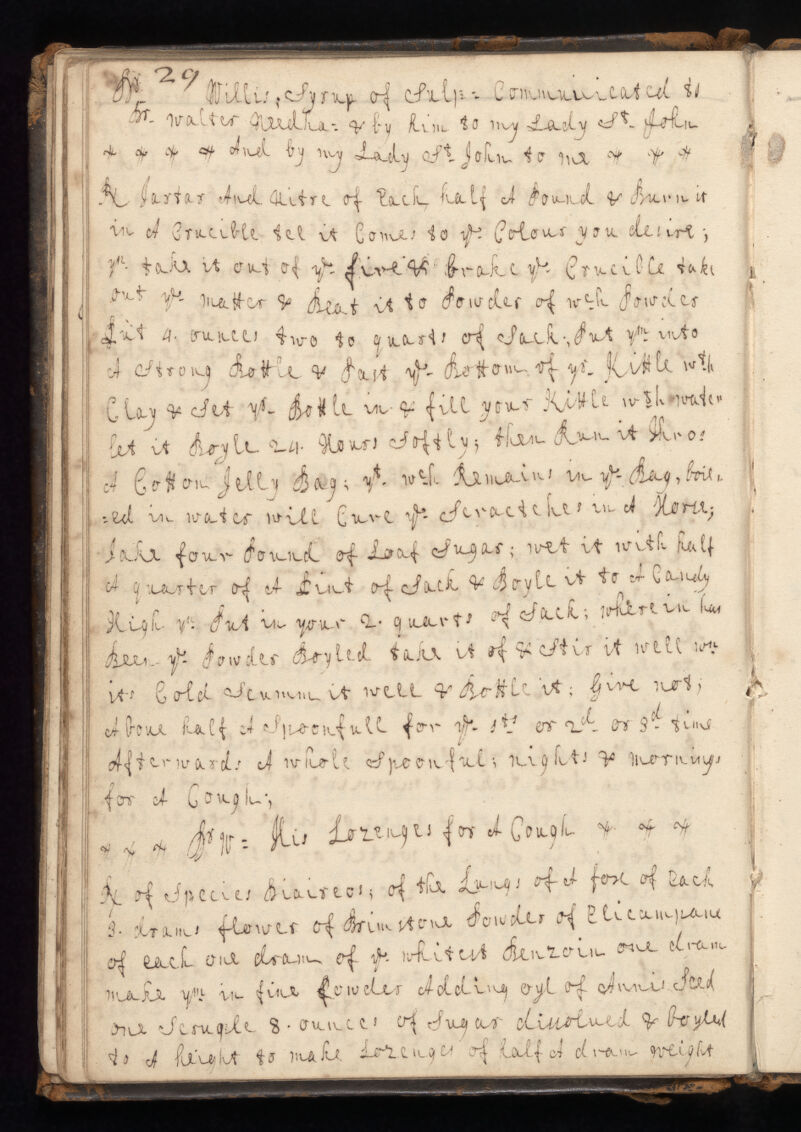 29
Dr. Willis, Syrup of Sulp= Communicated to
Dr. Walter Needha= & by him to my Lady St. John
And by my Lady St. John to me
℞ Tartar And Nitre of Each half A Pound & Burn it
in A Crucible tel it Comes to ye. Colour you desire;
yn. take it out of ye. fire & brake ye. Crucible take
out ye. matter & Beat it to Powder of wch Powder
Put 4. ounces two to quarts of Sack; Put ym into
A Strong Bottle & Past ye. Bottom of yr. Kittle wth
Clay & Set ye. Bottle in & fill your Kittle wth water
let it Boyle 24 Hours Softly; then Run it thro:
A Cotton Jelly Bag; yt. wch Remains in ye. Bag, boil,
=ed in water will Cure ye. Scractches in A Horse;
Take four Pound of Loaf Sugar; wet it with half
A quarter of A Pint of Sack & Boyle it to A Candy
High yn. Put in your 2. quarts of Sack; wherein has
Been ye. Powder Boyled take it of & Stir it well wn
its Cold Scumm it well & Bottle it; Give not;
Aboue half A Spoonfull for ye. 1st or 2d. or 3d time
Afterwards A whole Spoonful; nights & mornings
for A Cough;
Dr W= His Lozenges for A Cough
℞ of Species Diaireos; of the Lungs of A fox of Each
3. drams flower of Brimstone Powder of Elicampane
of each one dram of ye. whitest Benzoin one dram
make ym in fine Powder Adding oyl of Annis Seed
one Scruple 8. ounces of Sugar dissolued & boyled
to A height to make Lozenges of half A dram weight